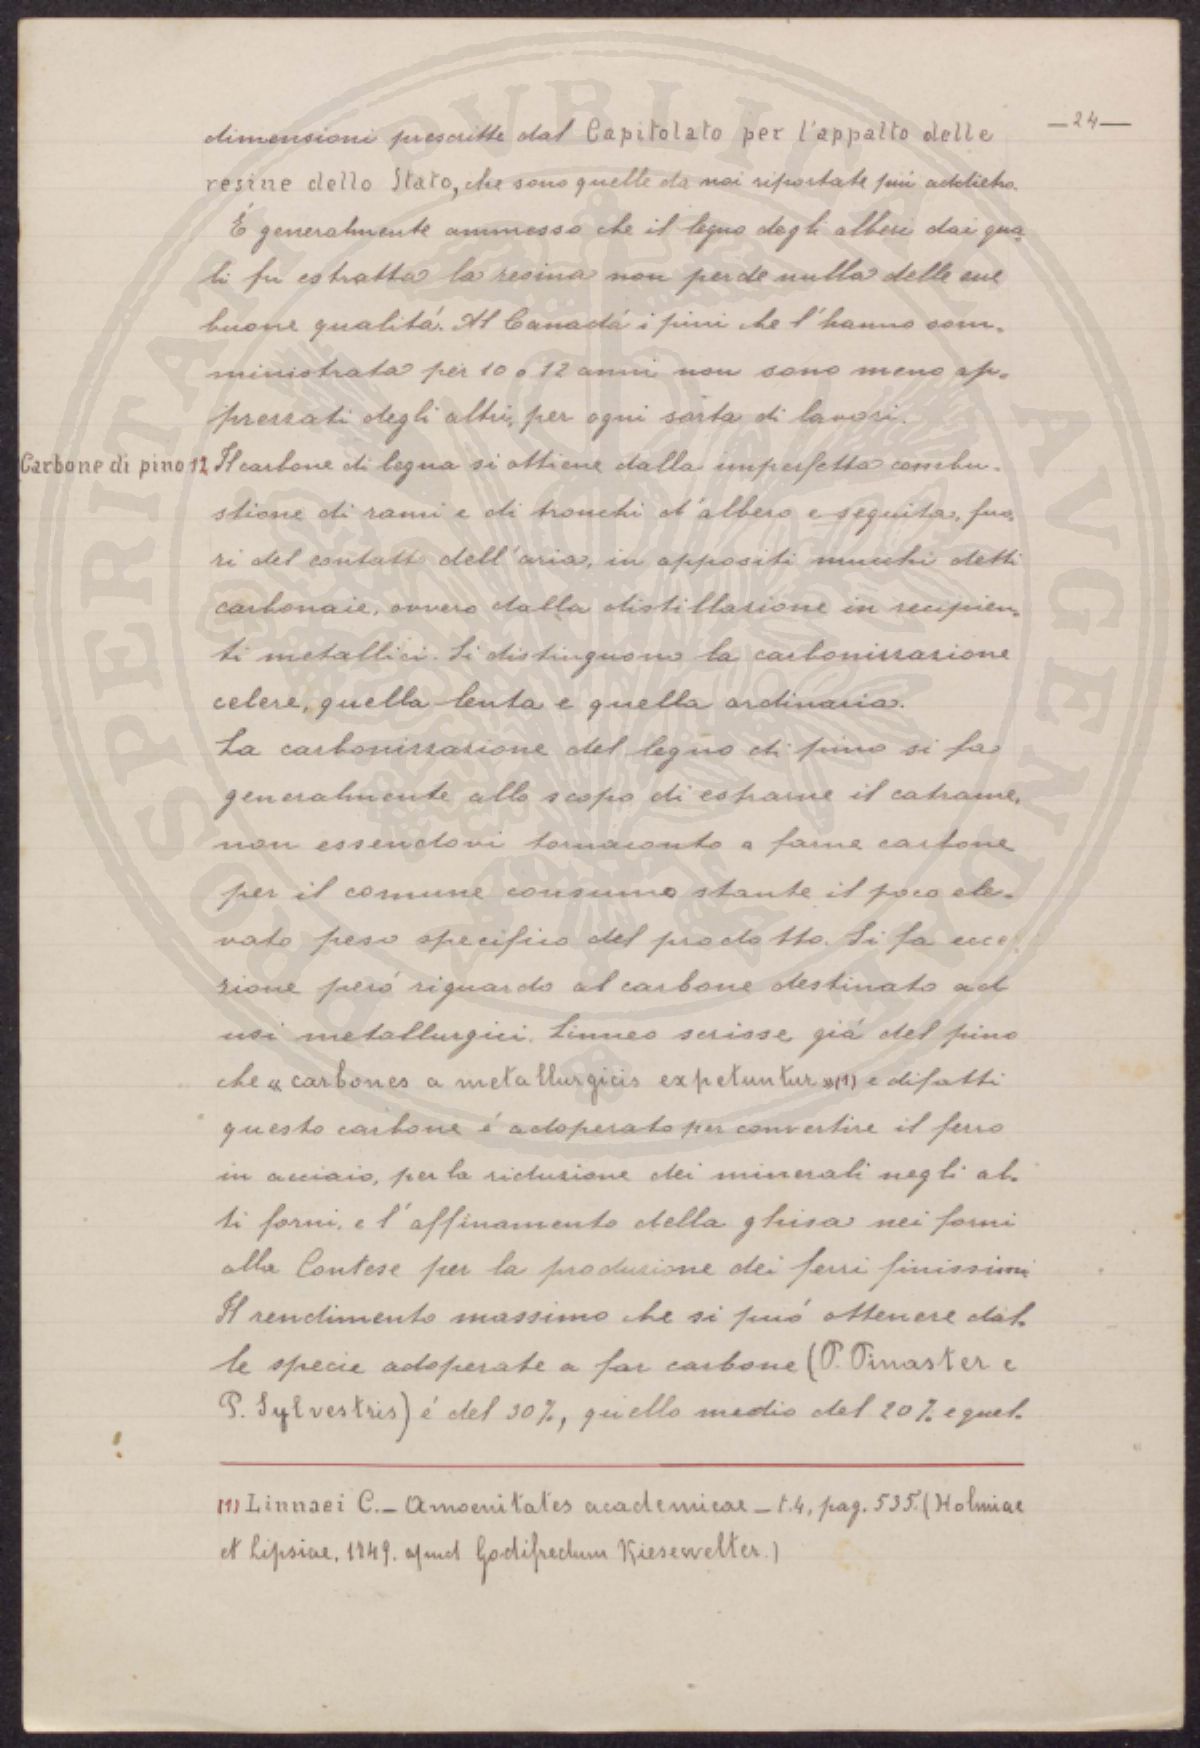 —24—
dimensioni prescritte dal Capitolato per l'appalto delle
resine dello Stato, che sono quelle da noi riportate più addietro.
É generalmente ammesso che il legno degli alberi dai qua-
li fu estratta la resina non perde nulla delle sue
buone qualitá. Al Canadá i pini che l'hanno som-
ministrata per 10 o 12 anni non sono meno ap-
prezzati degli altri, per ogni sorta di lavori.
Carbone di pino 12 Il carbone di legna si ottiene dalla imperfetta combu-
stione di rami e di tronchi d'albero eseguita, fuo-
ri del contatto dell'aria, in appositi mucchi detti
carbonaie, ovvero dalla distillazione in recipien-
ti metallici. Si distinguono la carbonizzazione
celere, quella lenta e quella ordinaria.
La carbonizzazione del legno di pino si fa
generalmente allo scopo di estrarne il catrame,
non essendovi tornaconto a farne carbone
per il comune consumo stante il poco ele-
vato peso specifico del prodotto. Si fa ecce-
zione peró riguardo al carbone destinato ad
usi metallurgici. Linneo scrisse giá del pino
che « carbones a metallurgicis expetuntur » (1) e difatti
questo carbone é adoperato per convertire il ferro
in acciaio, per la riduzione dei minerali negli al-
ti forni, e l'affinamento della ghisa nei forni
alla Contese per la produzione dei ferri finissimi
Il rendimento massimo che si puó ottenere dal-
le specie adoperate a far carbone (P. Pinaster e
P. Sylvestris) é del 30%, quello medio del 20% e quel-
(1) Linnaei C. — Amoenitates academicae — t. 4, pag. 535. (Holmiae
et Lipsiae, 1749. apud Godifredum Kiesewelter.)
PROSPERITATI PVBLICAE AVGENDAE